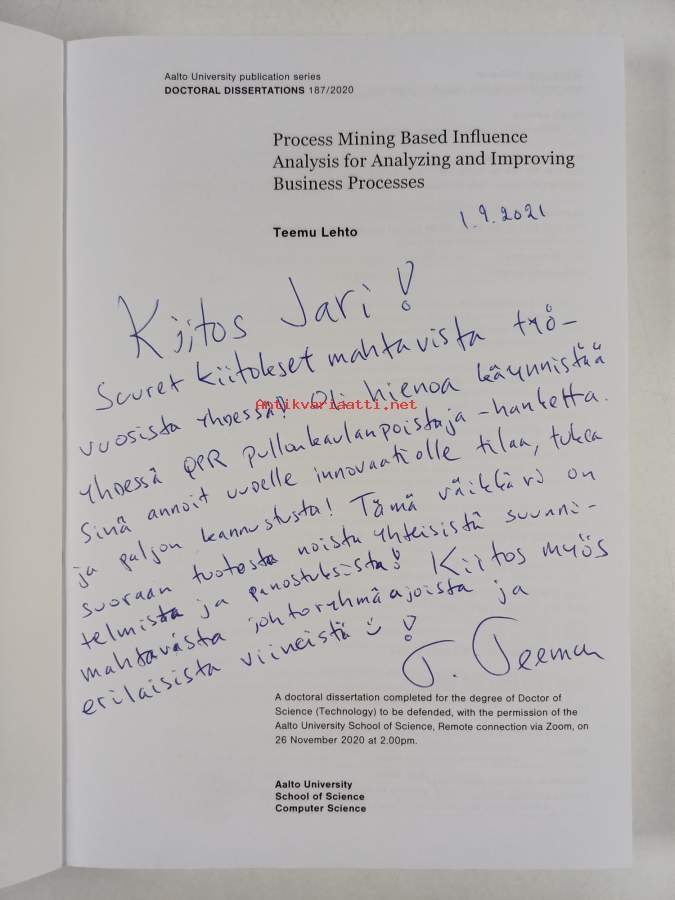 Aalto University publication series
DOCTORAL DISSERTATIONS 187/2020
Process Mining Based Influence
Analysis for Analyzing and Improving
Business Processes
1.9.2021
Teemu Lehto
Kiitos Jari!
Suuret kiitokset mahtavista työ-
vuosista yhdessä! Oli hienoa käynnistää
Antikvariaatti.net
yhdessä QPR pullonkaulanpoistaja-hanketta.
Sinä annoit uudelle innovaatiolle tilaa, tukea
ja paljon kannustusta! Tämä väikkäri on
suoraan tuotosta noista yhteisistä suunni-
telmista ja panostuksista! Kiitos myös
mahtavista johtoryhmäajoista ja
erilaisista viineistä !
T. Teemu
A doctoral dissertation completed for the degree of Doctor of
Science (Technology) to be defended, with the permission of the
Aalto University School of Science, Remote connection via Zoom, on
26 November 2020 at 2.00pm.
Aalto University
School of Science
Computer Science